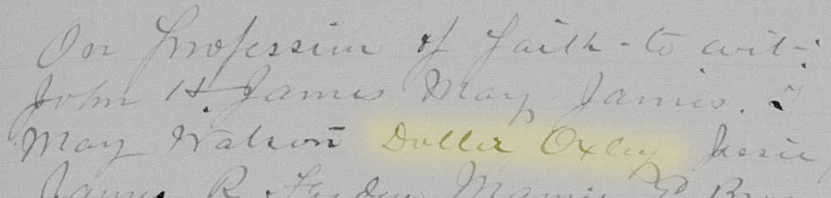 On Profession of faith - to wit -
John H. James May James.
May Watson Dollie Oxley Jessie
James R.